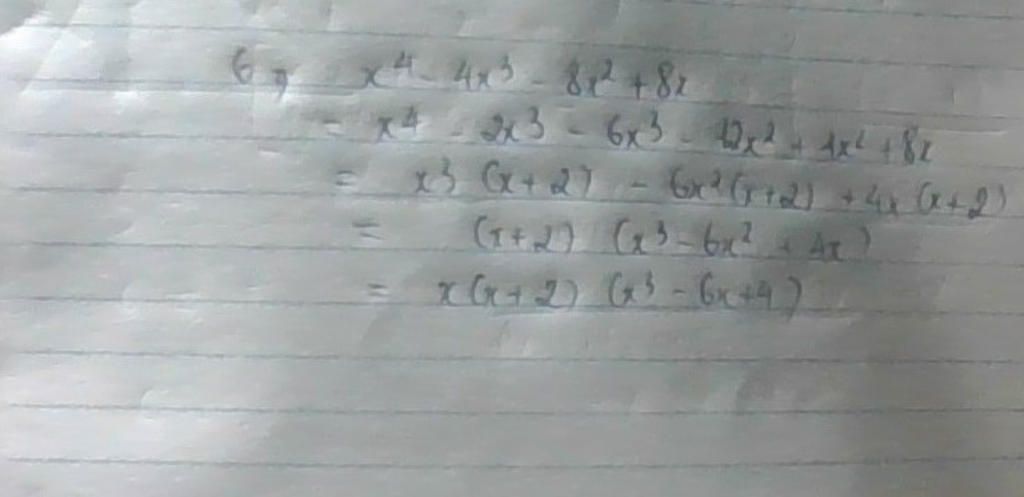 6, x⁴ - 4x³ - 8x² + 8x
= x⁴ - 2x³ - 6x³ - 12x² + 4x² + 8x
= x³ (x+2) - 6x²(x+2) + 4x (x+2)
= (x+2) (x³ - 6x² + 4x)
= x(x+2) (x³ - 6x+4)